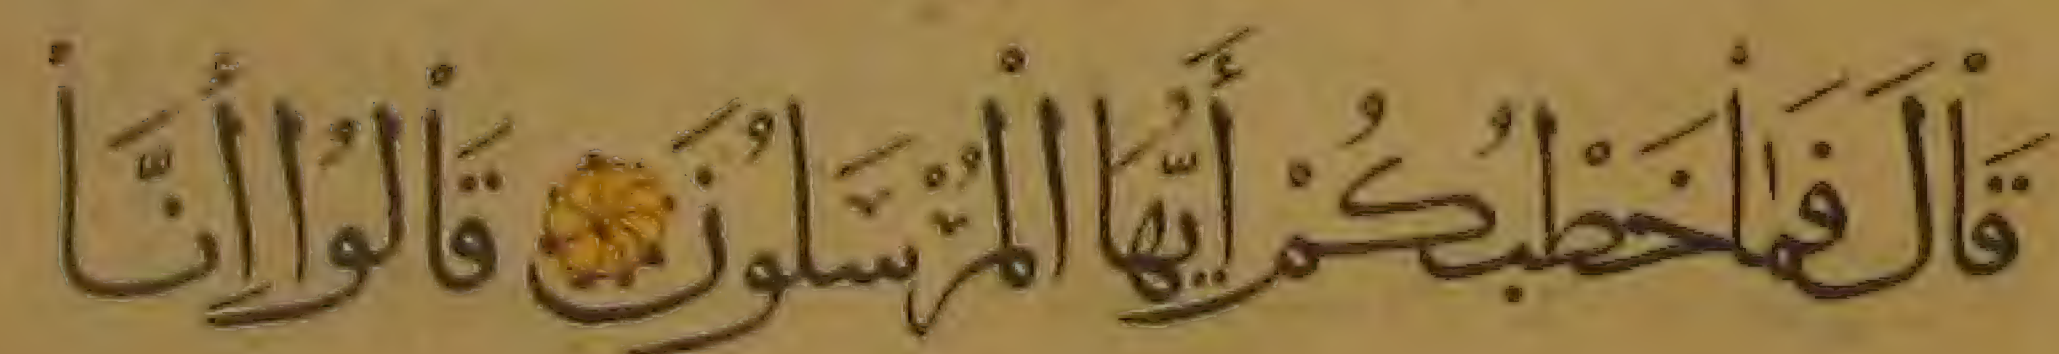 قَالَ فَمَا خَطْبُكُمْ أَيُّهَا الْمُرْسَلُونَ قَالُوا إِنَّا